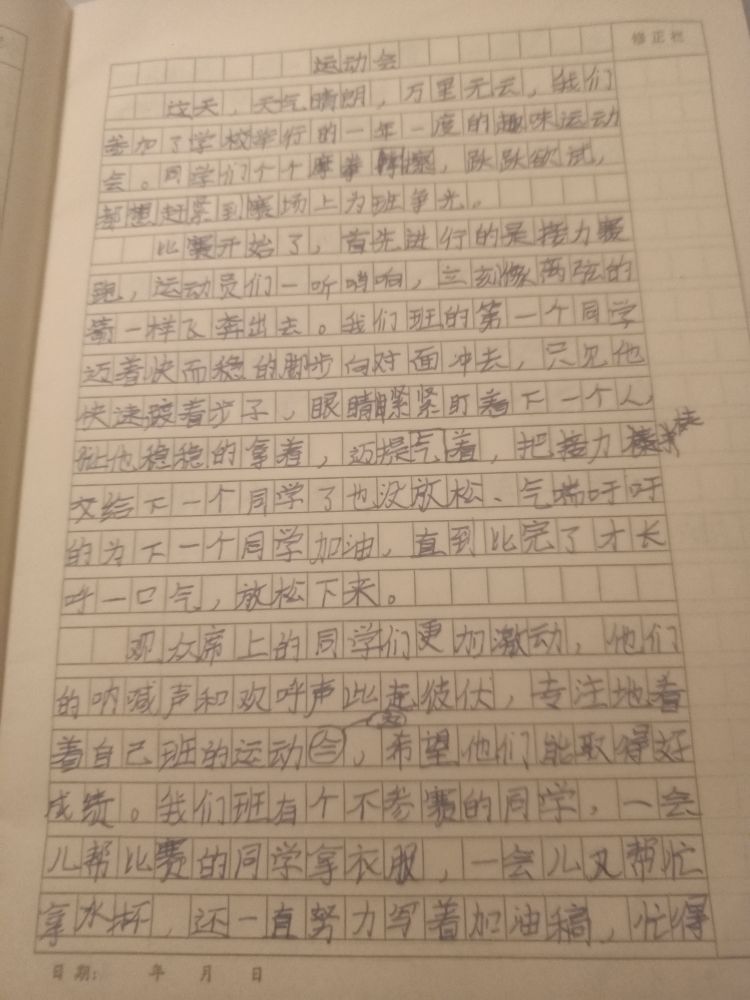 修正栏
运动会
这天，天气晴朗，万里无云，我们
参加了学校举行的一年一度的趣味运动
会。同学们个个摩拳擦，跃跃欲试，
都想赶紧到赛场上为班争光。
比赛开始了，首先进行的是接力赛
跑，运动员们一听哨响，立刻像离弦的
箭一样飞奔出去。我们班的第一个同学
迈着快而稳的脚步向对面冲去，只见他
快速踱着步子，眼睛紧紧盯着下一个人，
他稳稳的拿着，迈提气着，把接力棒
交给下一个同学了也没放松、气喘吁吁
的为下一个同学加油，直到比完了才长
呼一口气，放松下来。
观众席上的同学们更加激动，他们
的呐喊声和欢呼声此起彼伏，专注地看
着自己班的运动会，希望他们能取得好
成绩。我们班有个不参赛的同学，一会
儿帮比赛的同学拿衣服，一会儿又帮忙
拿水杯，还一直努力写着加油稿，忙得
日期： 年 月 日